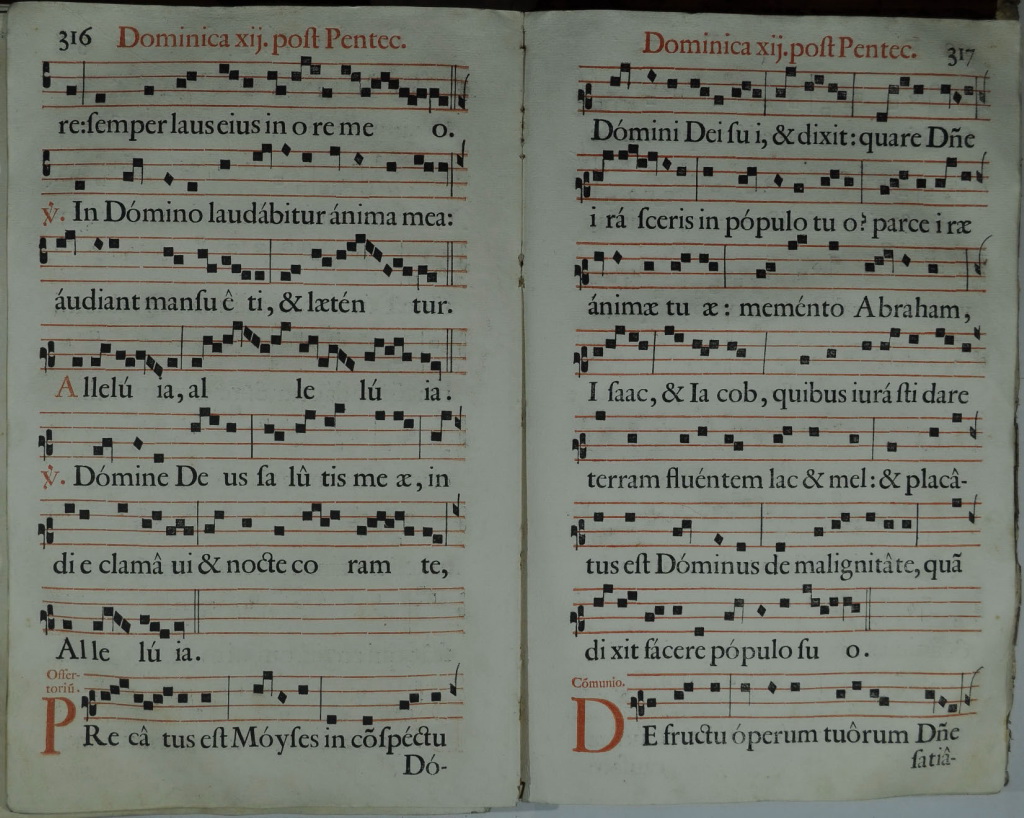 316 Dominica xij. poſt Pentec.
re:ſemper laus eius in o re me o.
℣. In Dómino laudábitur ánima mea:
áudiant manſu ê ti, & lætén tur.
Allelú ia, al le lú ia.
℣. Dómine De us ſa lû tis me æ, in
di e clamâ ui & nocte co ram te,
Al le lú ia.
Offer-
toriũ.
PRe câ tus eſt Móyſes in cõſpéctu
Dó-
Dominica xij. poſt Pentec. 317
Dómini Dei ſu i, & dixit: quare Dñe
i rá ſceris in pópulo tu o? parce i ræ
ánimæ tu æ: meménto Abraham,
I ſaac, & Ia cob, quibus iurá ſti dare
terram fluéntem lac & mel: & placâ-
tus eſt Dóminus de malignitâte, quã
di xit fácere pópulo ſu o.
Cómunio.
DE fructu óperum tuôrum Dñe
ſatiâ-